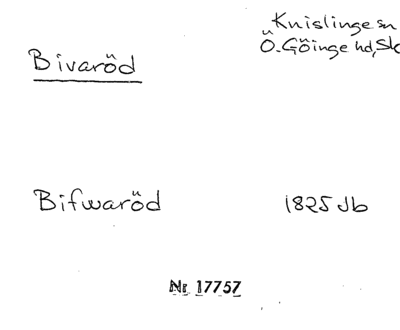 Knislinge sn
Ö. Göinge hd, Sk
Bivaröd
Bifwaröd 1825 Jb
Nr 17757